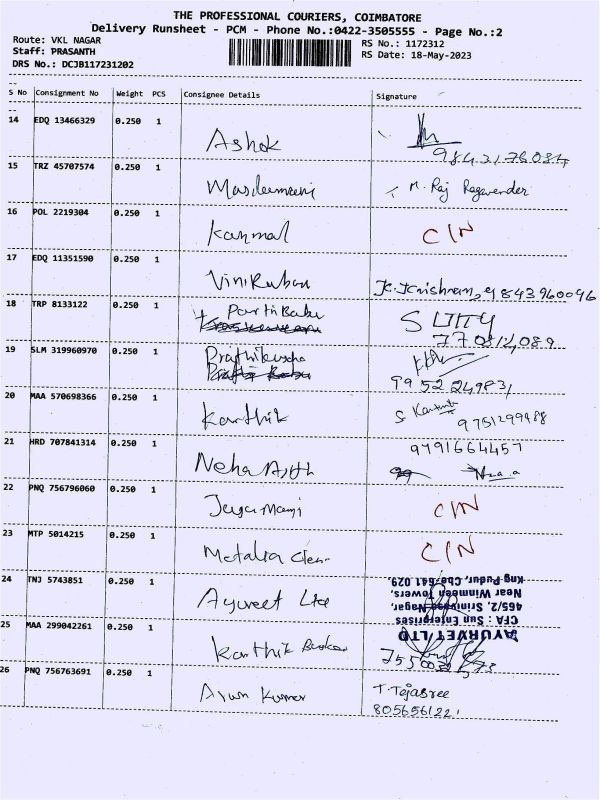 THE PROFESSIONAL COURIERS, COIMBATORE
Delivery Runsheet - PCM - Phone No.:0422-3505555 - Page No.:2
Route: VKL NAGAR
Staff: PRASANTH
DRS No.: DCJB117231202
RS No.: 1172312
RS Date: 18-May-2023
S No Consignment No Weight PCS Consignee Details Signature
14 EDQ 13466329 0.250 1 Ashok
15 TRZ 45707574 0.250 1 M. Raj Ragavender
16 POL 2219304 0.250 1 Kanmal C/N
17 EDQ 11351590 0.250 1 Vini Ruban K. Krishnan, 9843960096
18 TRP 8133122 0.250 1 Parthi Babu
19 SLM 319960970 0.250 1
9952249831
20 MAA 570698366 0.250 1 Karthik S 9751299488
21 HRD 707841314 0.250 1 Neha 9791664457
22 PNQ 756796060 0.250 1 Jeya Mani C/N
23 MTP 5014215 0.250 1 C/N
24 TNJ 5743851 0.250 1 Ayuveet Ltd
AYURVET LTD
CFA : Sun Enterprises
465/2, Srinivasa Nagar,
Near Winmeen Towers,
Kng Pudur, Cbe-641 029.
25 MAA 299042261 0.250 1 Karthik
26 PNQ 756763691 0.250 1 Arun Kumar T. Tejasree
805656122